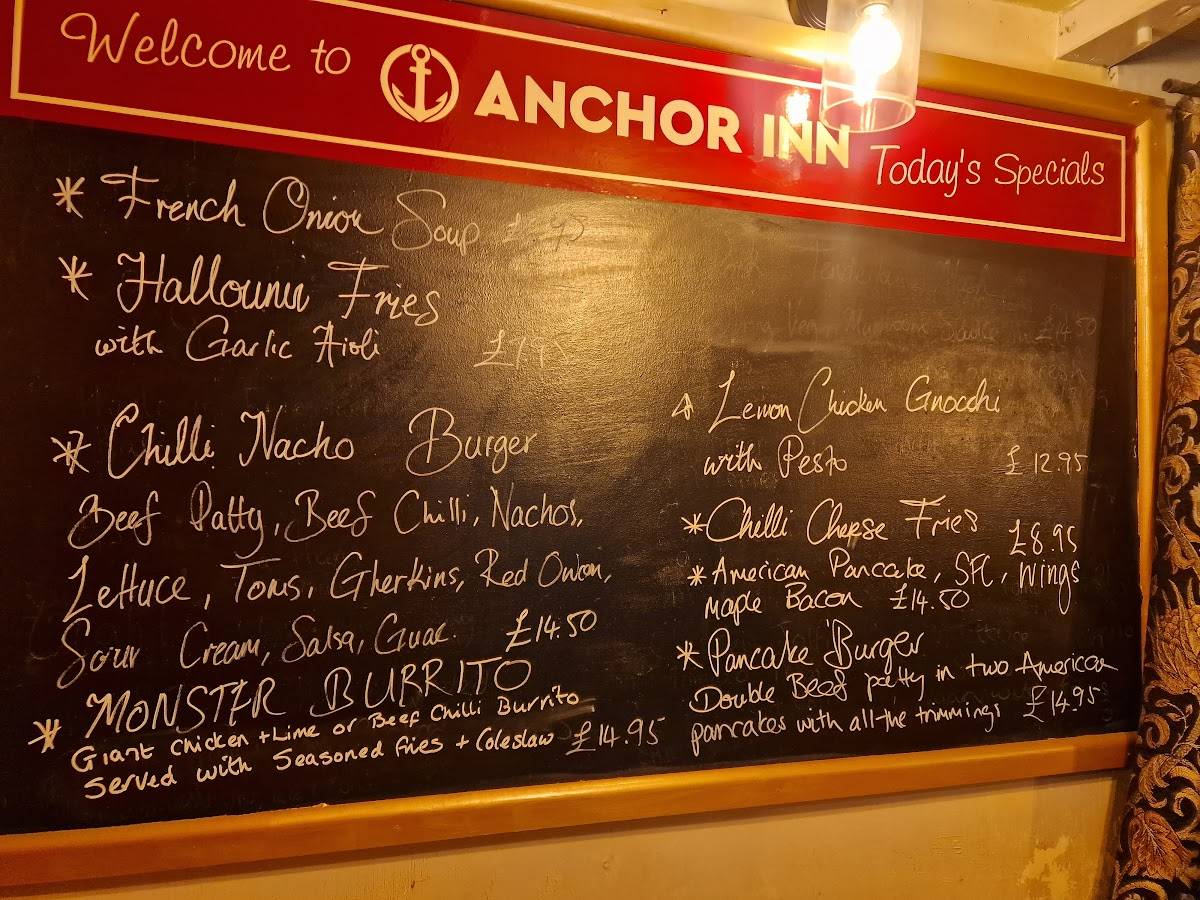 Welcome to ANCHOR INN Today's Specials
* French Onion Soup
* Halloumi Fries
with Garlic Aioli £7.95
* Chilli Nacho Burger
Beef Patty, Beef Chilli, Nachos,
Lettuce, Toms, Gherkins, Red Onion,
Sour Cream, Salsa, Guac. £14.50
* MONSTER BURRITO
Giant Chicken + Lime or Beef Chilli Burrito
Served with Seasoned fries + Coleslaw £14.95
£14.50
* Lemon Chicken Gnocchi
with Pesto £12.95
* Chilli Cheese Fries £8.95
* American Pancake, SFC, Wings
Maple Bacon £14.50
* Pancake Burger
Double Beef patty in two American
pancakes with all the trimmings £14.95